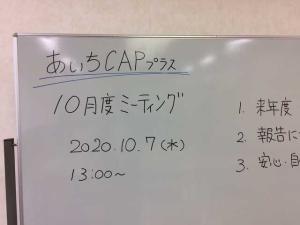 あいちCAPプラス
10月度ミーティング
2020.10.7(水)
13:00〜
1. 来年度
2. 報告に
3. 安心・自